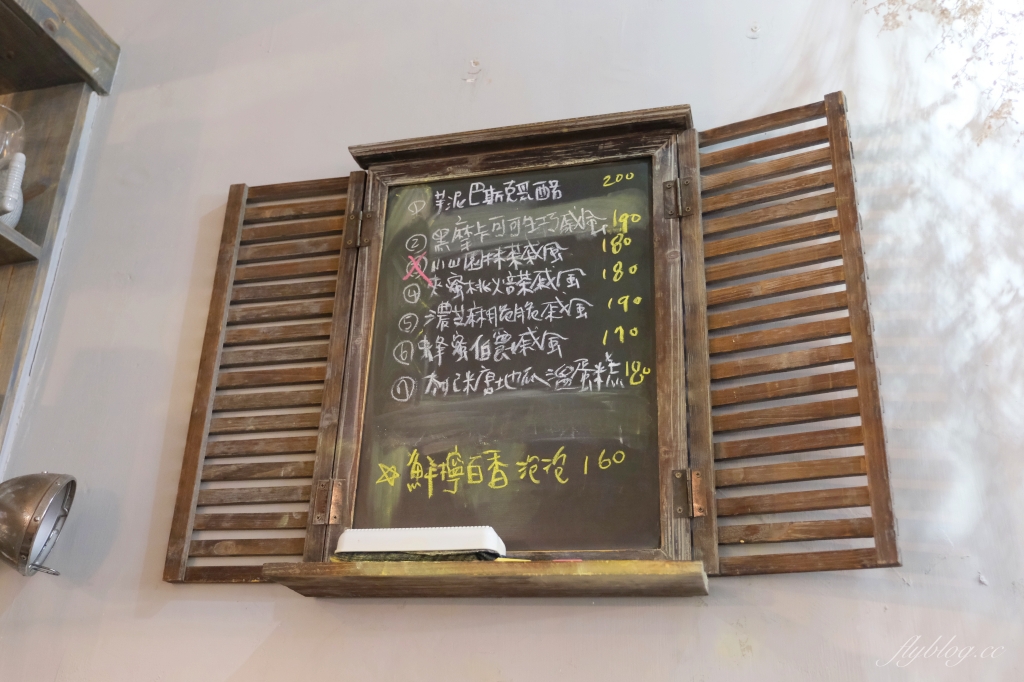 ① 芋泥巴斯克乳酪 200
② 黑摩卡可可生巧戚風 190
小山園抹茶戚風 180
④ 水蜜桃焙茶戚風 180
⑤ 濃芝麻脆脆戚風 190
⑥ 蜂蜜伯爵戚風 170
⑦ 地瓜溫蛋糕 180
☆ 鮮檸百香泡泡 160
flyblog.cc